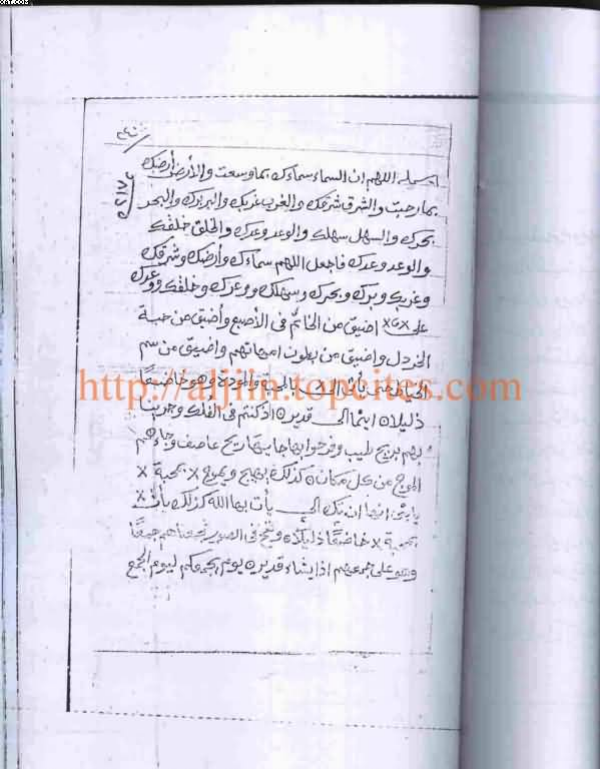 ٢٤٠
بسملة اللهم ان السماء سماءك بما وسعت والأرض أرضك
بما رحبت والشرق شرقك والغرب غربك والبر برك والبحر
بحرك والسهل سهلك والوعد وعدك والخلق خلقك
والوعد وعدك فاجعل اللهم سماءك وأرضك وشرقك
وغربك وبرك وبحرك وسهلك ووعدك وخلقك ووعدك
على اضيق من الخاتم في الأصبع وأضيق من حبة
الخردل واضيق من بطون امهاتهم واضيق من سم
الخياط حتى يأتي الى بالمحبة والمودة وهو خاضعًا
ذليلا الى قدير اذ كنتم في الفلك وجرين
بهم بريح طيب وفرحوا بها جاءتها ريح عاصف وجاءهم
الموج من كل مكان كذلك يهيج ويموج x بمحبة x
يا بنى انها ان تك الى يأت بها الله كذلك يأت x
بمحبة x خاضعًا ذليلا ونفخ في الصور فجمعناهم جمعًا
وهو على جمعهم اذا يشاء قدير يوم يجمعكم ليوم الجمع
http://aljiln.topcites.com